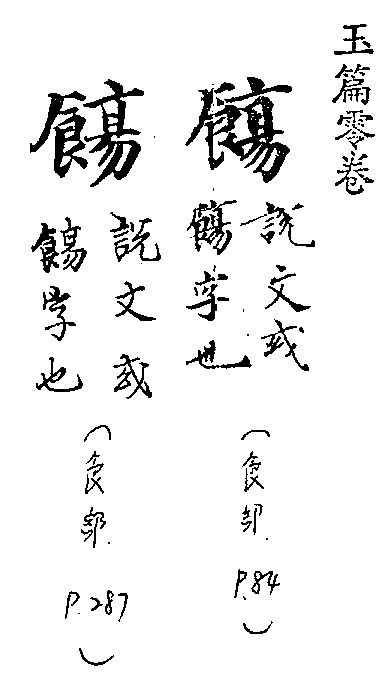 玉篇零卷
說文或
字也
(食部 P.84)
說文或
字也
(食部 P.287)